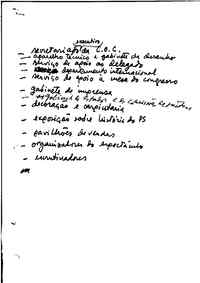 executivo
- secretariado da C.O.C.
- aparelho técnico e gabinete de desenho
- serviço de apoio ao delegado
- departamento internacional
- serviço de apoio à mesa do congresso
- gabinete de imprensa
- decoração e carpintaria
- exposição sobre história do PS
- pavilhões de vendas
- organizadores do espectáculo
-